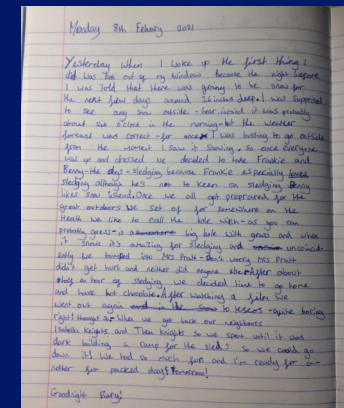 Monday 8th Febuary 2021
Yesterday when I woke up the first thing I
did was look out of my window because the night before
I was told that there was going to be snow for
the next few days around 16 inches deep. I was supprised
to see any snow outside - bear in mind it was probably
about six o'clock in the morning - but the weather
forecast was correct - for once. I was busting to go outside
from the moment I saw it snowing, so once everyone
was up and dressed we decided to take Frankie and
Benny - the dogs - sledging because Frankie especially loves
sledging although he's not to keen on sledging Benny
likes snow
great outdoors we set of for somewhere on the
Heath we like to call the hole which - as you can
probably guess - is big hole with grass and when
it snows it's amazing for sledging and
we bumped into Mrs Pratt - don't worry Mrs Pratt
didn't get hurt and neither did anyone else. After about
an hour of sledging, we decided time to go home
and have hot chocolate. After watching a film we
went out again to - quite boring
right! thought so. When we got back our neighbours
Isabella Knights and Theo Knights so we spent until it was
dark building a ramp for the sleds so we could go
down it! We had so much fun and I'm ready for a-
nother fun packed day tomorrow!
Goodnight Diary!